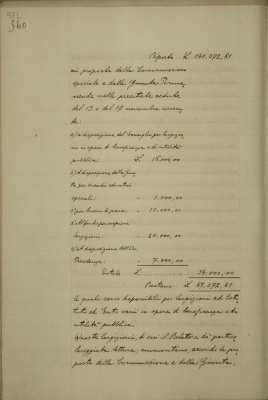 360
Riporto L. 141.072,81
in proposta della Commissione
speciale e della Giunta Perma-
nente nelle precitate sedute
del 13 e del 17 novembre corren-
te:
a) a disposizione del Consiglio per largizio-
ni in opere di beneficenza e di utilità
pubblica L. 16.000,00
b) A disposizione della Giun-
ta per
speciali " 1.000,00
c) per buoni di pane " 10.000,00
d)
largizioni " 20.000,00
e) A disposizione della
Presidenza " 7.000,00
Totale L. 54.000,00
Restano L. 87.072,81
le quali sono disponibili per largizioni ad Isti-
tuti ed Enti varii in opere di beneficenza e di
utilità pubblica.
Queste largizioni, di cui il Relatore dà partico-
lareggiata lettura, ammontano, secondo le pro-
poste della Commissione e della Giunta,